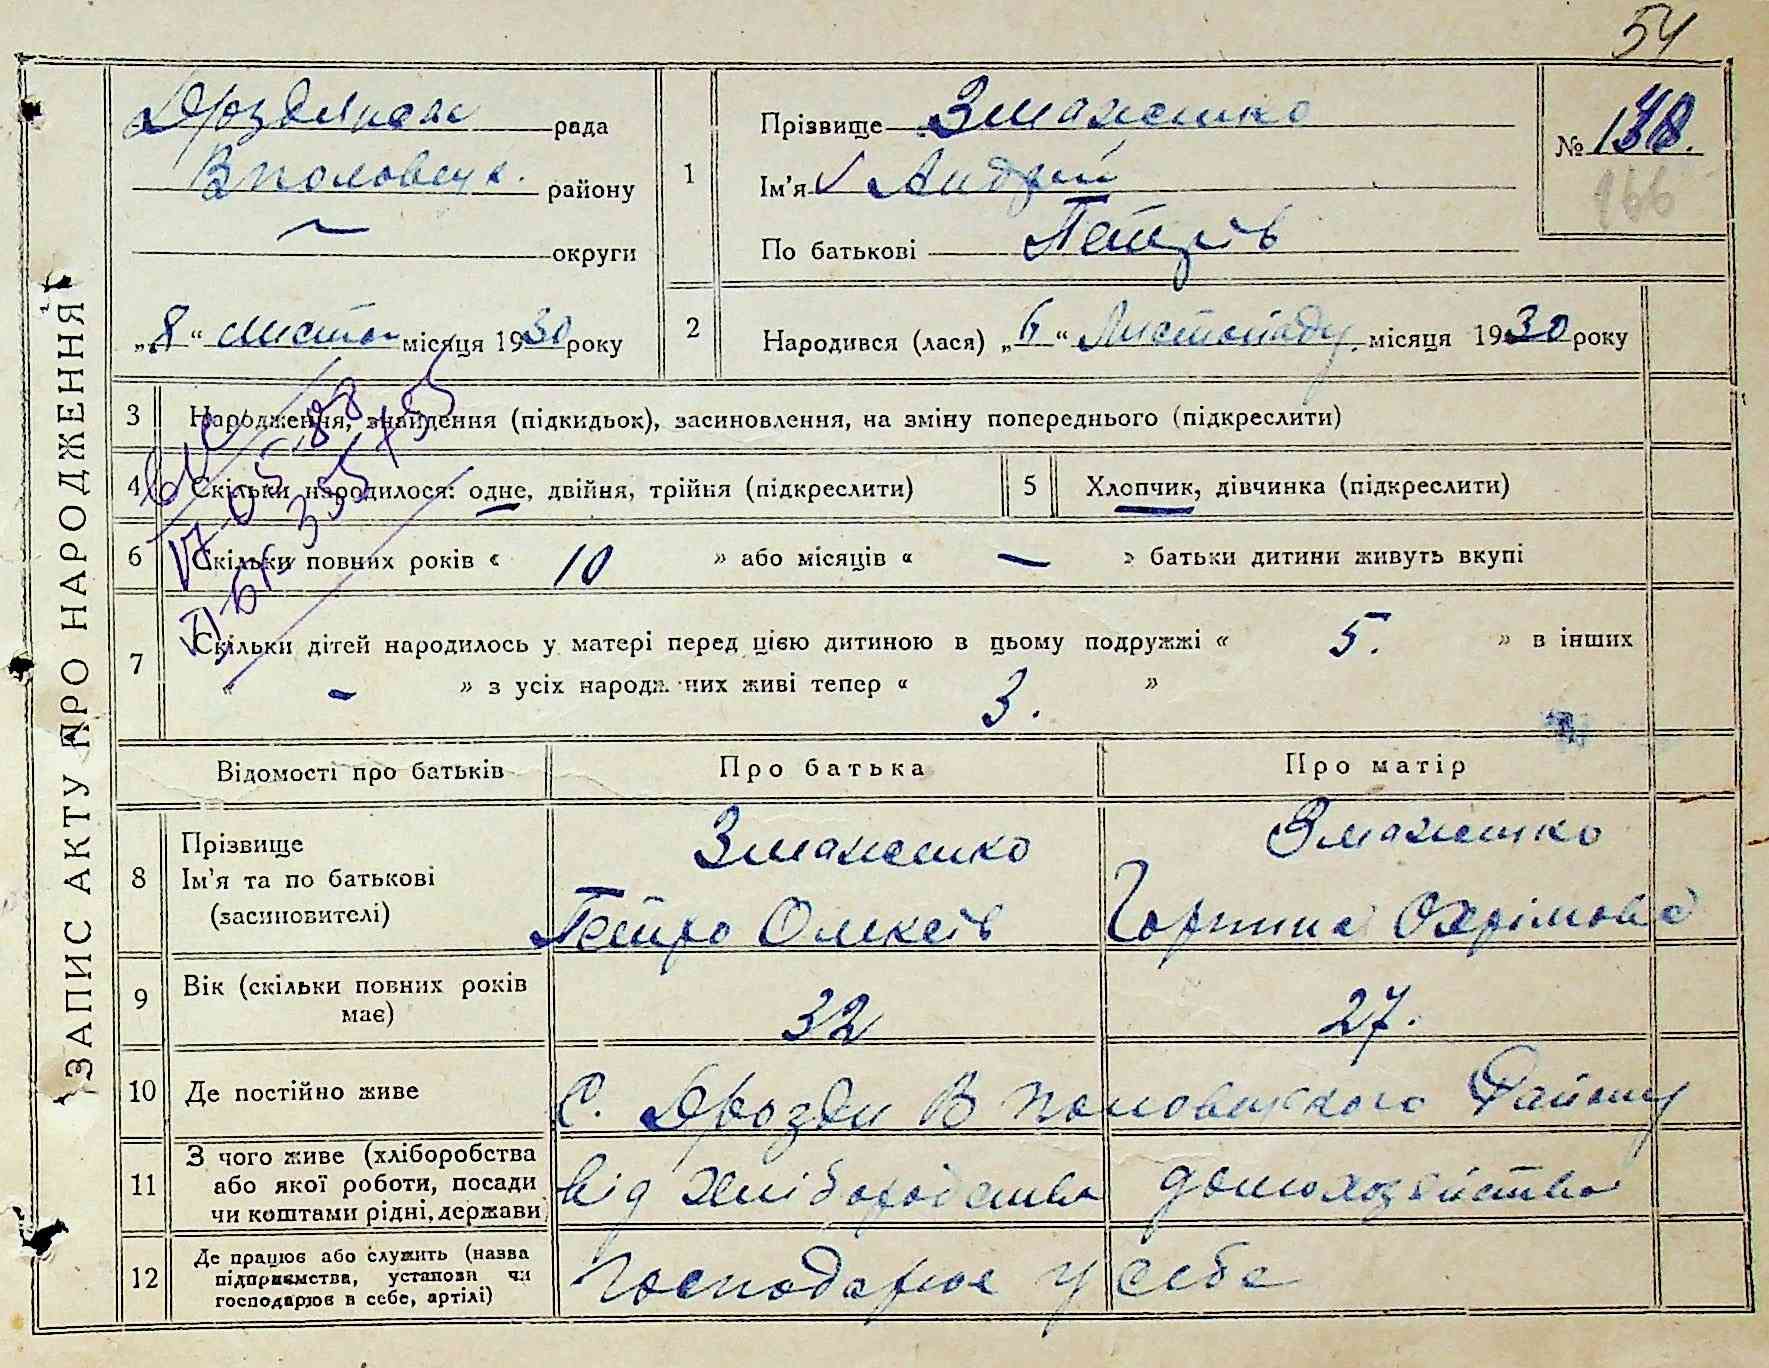 54
ЗАПИС АКТУ ПРО НАРОДЖЕННЯ
рада
району
округи
„8“ листоп місяця 1930 року
1
Прізвище Змаженко
Ім'я Андрій
По батькові Петрів
№ 138.
166
2
Народився (лася) „6“ Листопаду місяця 1930 року
3 Народження, знайдення (підкидьок), засиновлення, на зміну попереднього (підкреслити)
4 Скільки народилося: одне, двійня, трійня (підкреслити)
5 Хлопчик, дівчинка (підкреслити)
6 Скільки повних років « 10 » або місяців « — » батьки дитини живуть вкупі
7 Скільки дітей народилось у матері перед цією дитиною в цьому подружжі « 5. » в інших
« - » з усіх народж них живі тепер « 3. »
Відомості про батьків Про батька Про матір
8 Прізвище
Ім'я та по батькові
(засиновителі)
Змаженко
Петро Олексів
Змаженко
Горпина Охрімова
9 Вік (скільки повних років
має)
32 27.
10 Де постійно живе С. Дрозди В Половецького Району
11 З чого живе (хліборобства
або якої роботи, посади
чи коштами рідні, держави
від хліборобства домохозяйства
12 Де працює або служить (назва
підприємства, установи чи
господарює в себе, артілі)
Господарює у себе